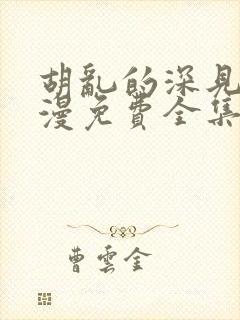 胡亂的深見
漫免費全集
曹雲金